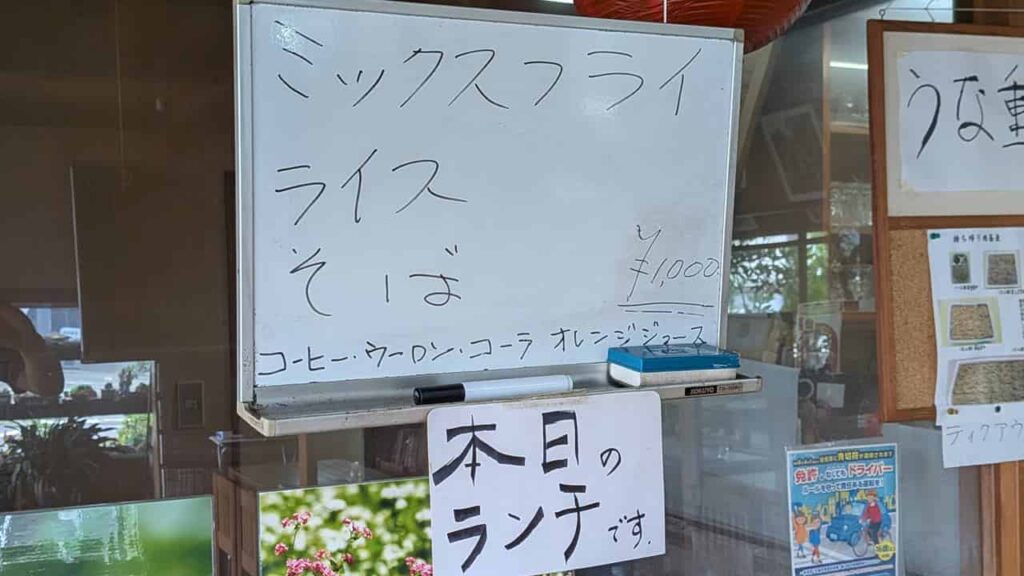 ミックスフライ
ライス
そば
¥1,000
コーヒー・ウーロン・コーラ オレンジジュース
本日の
ランチです.
うな重
持ち帰り用
テイクアウ
免許 なくてもドライバー